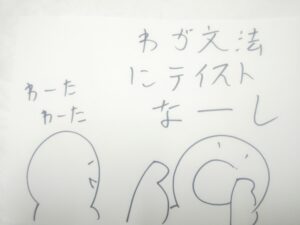 わが文法
にテイスト
なーし
わーた
わーた